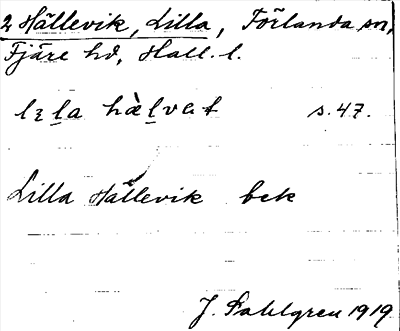 2 Hällevik, Lilla, Förlanda sn,
Fjäre hd, Hall. l.
s. 47.
Lilla Hällevik bek
J. Sahlgren 1919